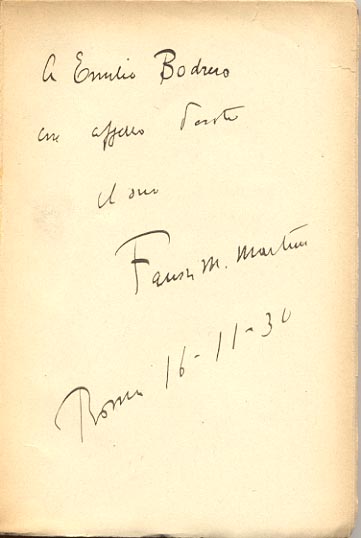 A Emilio Bodrero
con affetto
il suo
Fausto M. Martini
Roma 16-11-30